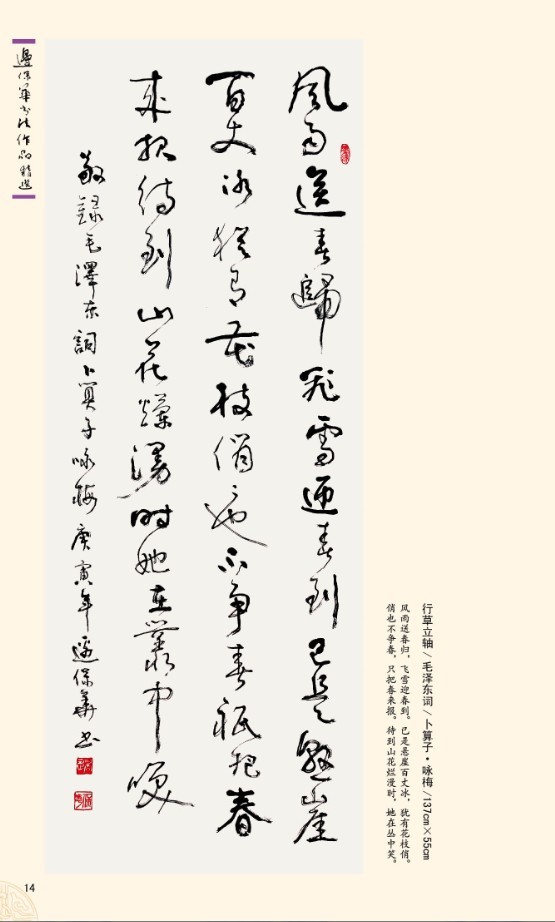 邊保華书法作品精選
風雨送春歸飛雪迎春到已是懸崖
百丈冰猶有花枝俏々也不爭春祇把春
来報待到山花爛漫時她在叢中笑
敬録毛澤东詞卜算子咏梅庚寅年邊保華书
行草立轴/毛泽东词/卜算子·咏梅/137cm×55cm
风雨送春归，飞雪迎春到。已是悬崖百丈冰，犹有花枝俏。
俏也不争春，只把春来报。待到山花烂漫时，她在丛中笑。
14